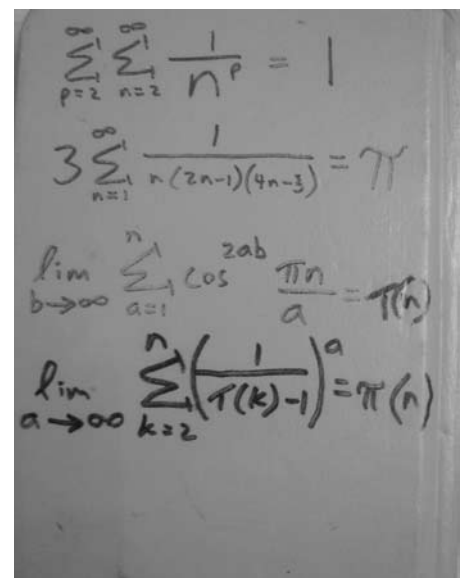 ∑_{p=2}^{∞} ∑_{n=2}^{∞} 1/n^p = 1
3 ∑_{n=1}^{∞} 1/(n(2n-1)(4n-3)) = π
lim_{b→∞} ∑_{a=1}^{n} cos^{2ab} πn/a = τ(n)
lim_{a→∞} ∑_{k=2}^{n} (1/(τ(k)-1))^a = π(n)